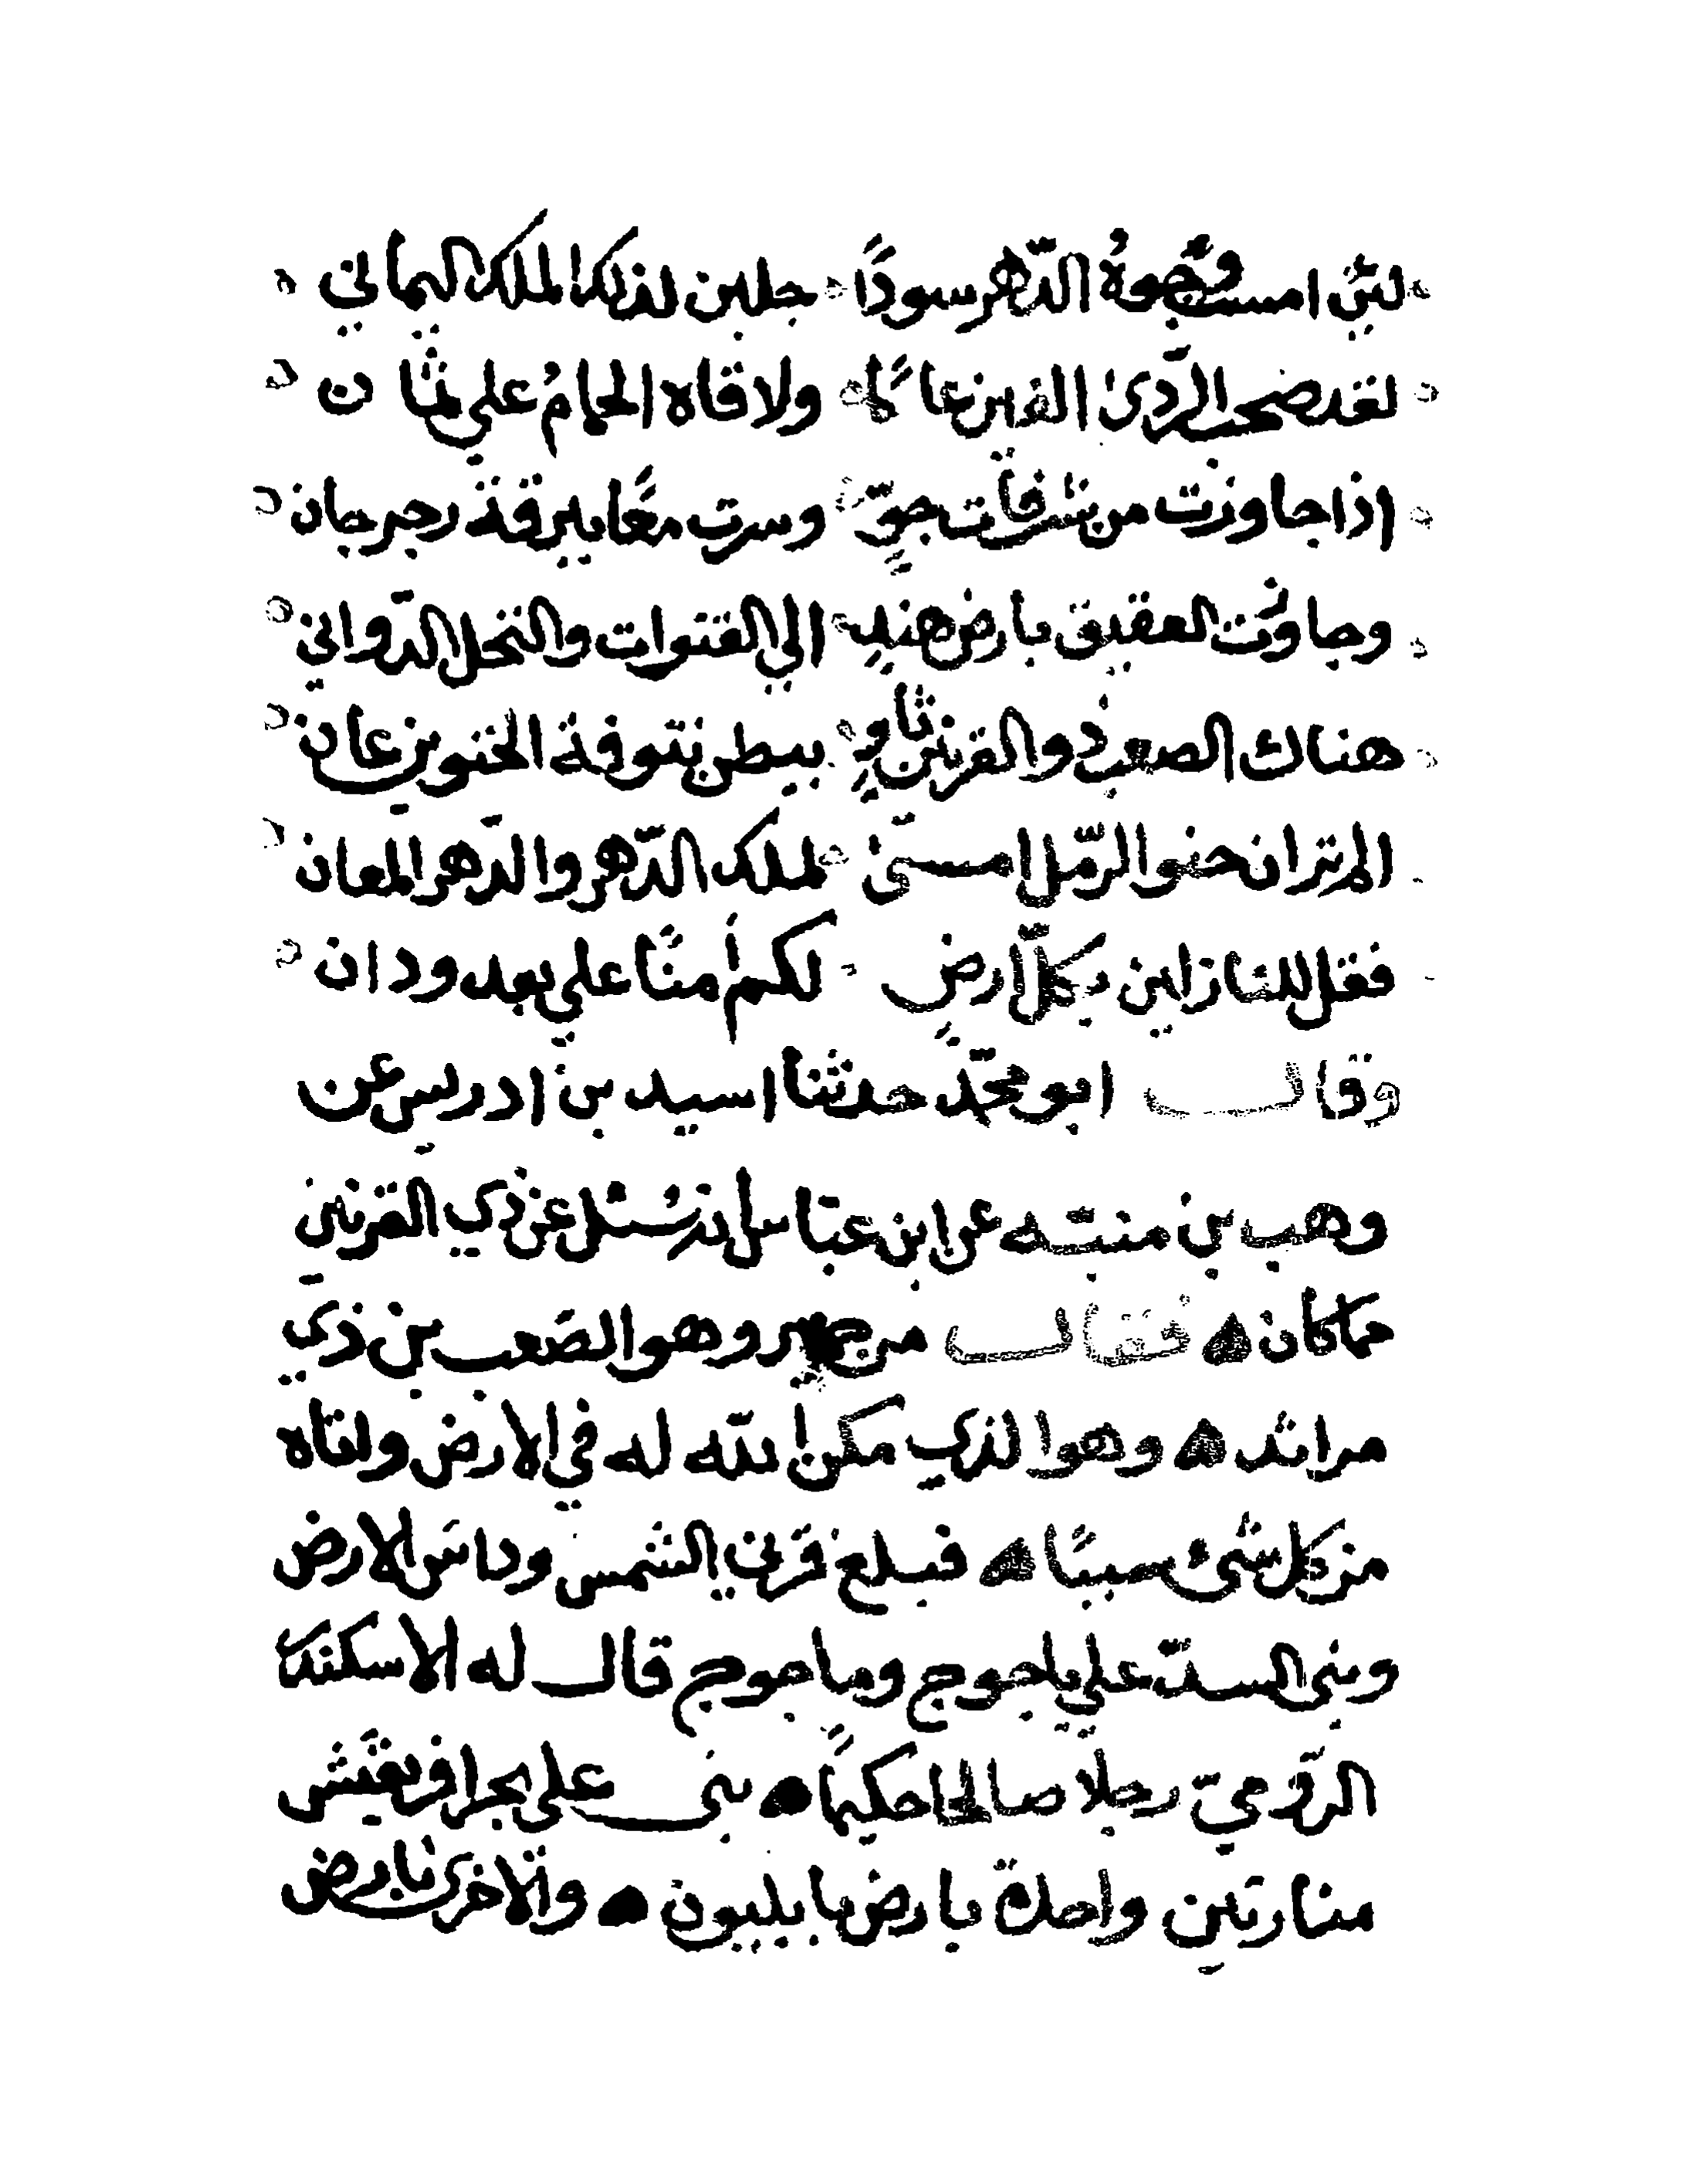 لئن امست وجوهُ الدّهر سودًا جلبن لذلك الملك اليماني
لقد صحب الرّدى الفين عامًا ولاقاه الحمامُ على ثمان
اذا جاوزت من شرفات جوٍّ وسرت معًا ببرقة رجرجان
وجاوزت العقيق بارض هندٍ الي القنوات والنخل الدّواني
هناك الصعب ذو القرنين ثاوٍ ببطن تنوفة الحنوين عان
الم تر ان حنو الرّمل امسىٰ لملك الدّهر والدّهر المعان
فقل للنازلين بكلّ ارضٍ لكم أمنًا علي بعد ودان
وقال ابو محمّد حدثنا اسيد بن ادريس عن
وهب بن منبّه عن ابن عبّاس انه سُئل عن ذي القرنين
مما كان فقال من حمير وهو الصّعب بن ذي
مراثد وهو الذي مكن الله له في الارض واتاه
من كل شئ سببًا فبلغ قرني الشمس وداسَ الارض
وبنى السدّ علي ياجوج وماجوج قال له الاسكندر
الرّوميّ رجلا صالحا حكيمًا بنى على بحر افريقيش
منارتين واحدة بارض بابليون والاخرىٰ بارض